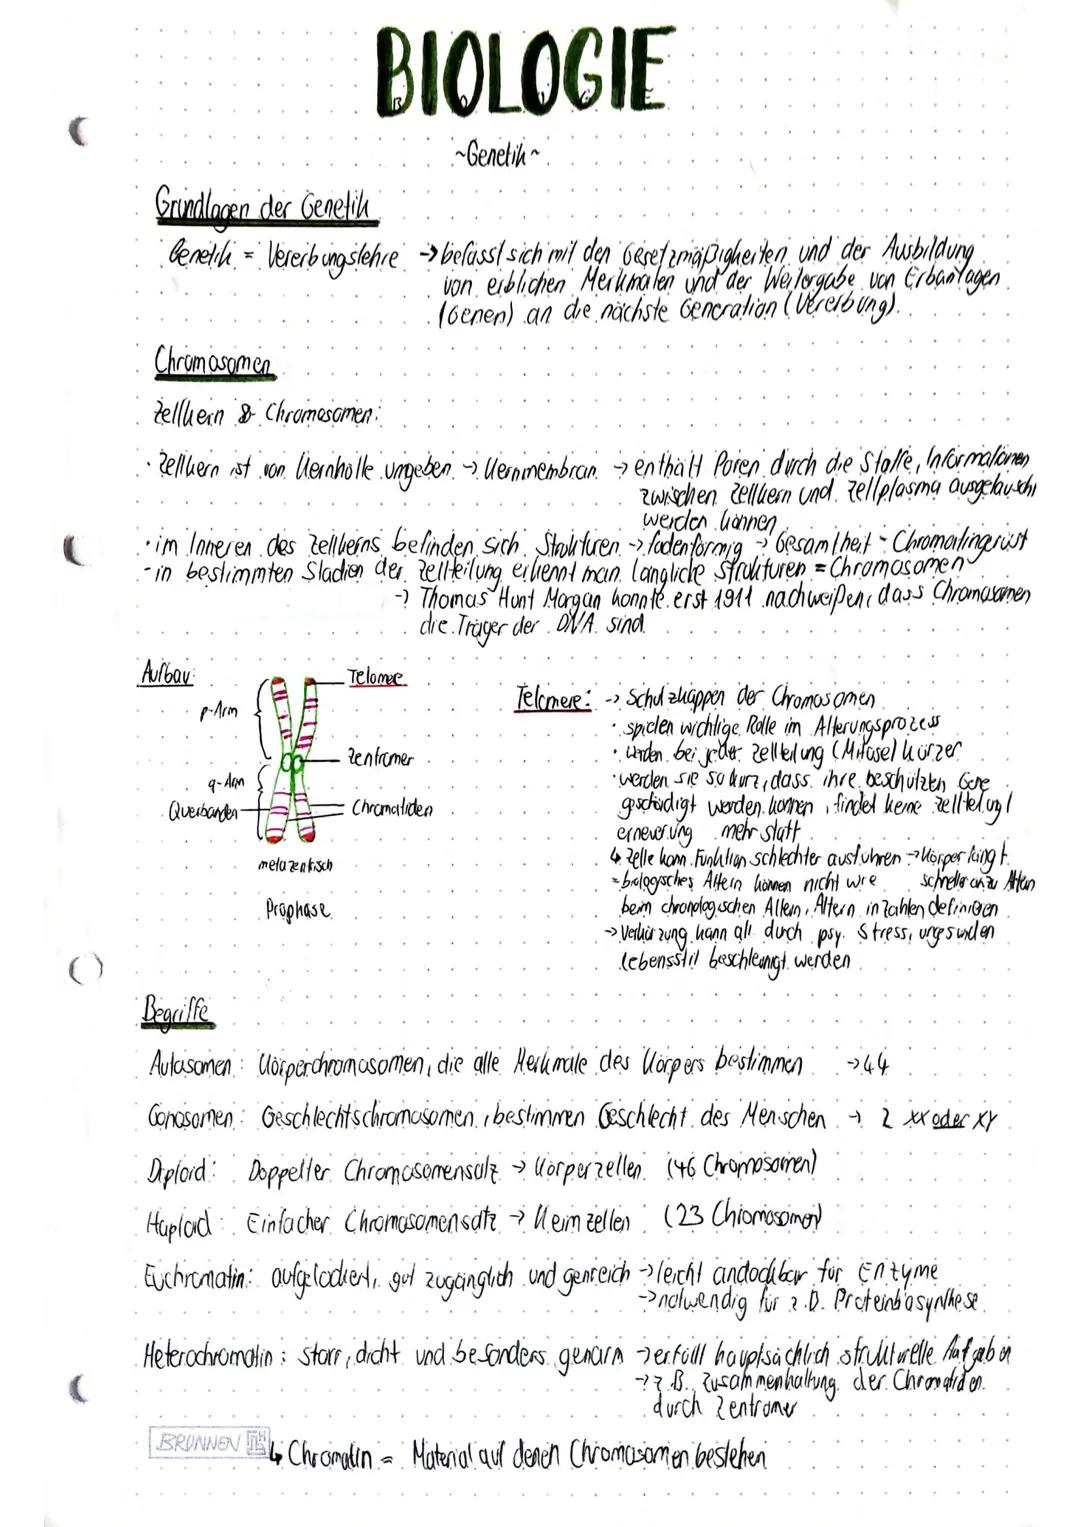 BIOLOGIE
~Genetik~
Grundlagen der Genetik
Genetik = Vererbungslehre → befasst sich mit den Gesetzmäßigkeiten und der Ausbildung
von erblichen Merkmalen und der Weitergabe von Erbanlagen
(Genen) an die nächste Generation (Vererbung).
Chromosomen
Zellkern & Chromosomen:
· Zellkern ist von Kernhülle umgeben → Kernmembran → enthält Poren durch die Stoffe, Informationen
zwischen Zellkern und Zellplasma ausgetauscht
werden können
· im Inneren des Zellkerns befinden sich Strukturen → fadenförmig → Gesamtheit = Chromatingerüst
- in bestimmten Stadien der Zellteilung erkennt man längliche Strukturen = Chromosomen
→ Thomas Hunt Morgan konnte erst 1911 nachweißen, dass Chromosomen
die Träger der DNA sind
Aufbau:
Telomere
p-Arm
Zentromer
q-Arm
Querbanden
Chromatiden
metazentrisch
Prophase
Telomere: → Schutzkappen der Chromosomen
· spielen wichtige Rolle im Alterungsprozess
· werden bei jeder Zellteilung (Mitose) kürzer
· werden sie so kurz, dass ihre beschützten Gene
geschädigt werden können, findet keine Zellteilung/
erneuerung mehr statt
↳ Zelle kann Funktion schlechter ausführen → Körper fängt
schneller an zu Altern
= biologisches Altern können nicht wie
beim chronologischen Altern, Altern in Zahlen definieren
→ Verkürzung kann all durch psy. Stress, ungesunden
Lebensstil beschleunigt werden
Begriffe
Autosomen: Körperchromosomen, die alle Merkmale des Körpers bestimmen → 44
Gonosomen: Geschlechtschromosomen, bestimmen Geschlecht des Menschen → 2 XX oder XY
Diploid: Doppelter Chromosomensatz → Körperzellen (46 Chromosomen)
Haploid: Einfacher Chromosomensatz → Keimzellen (23 Chromosomen)
Euchromatin: aufgelockert, gut zugänglich und genreich → leicht andockbar für Enzyme
→ notwendig für z.B. Proteinbiosynthese
Heterochromatin: starr, dicht und besonders genarm → erfüllt hauptsächlich strukturelle Aufgaben
→ z.B. Zusammenhaltung der Chromatiden
durch Zentromer
BRUNNEN
↳ Chromatin = Material auf denen Chromosomen bestehen